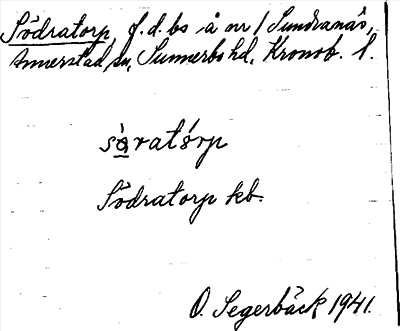 Södratorp, f.d. bs å nr 1 Sundranäs,
Annerstad sn, Sunnerbo hd, Kronob. l.
sö̀ratårp
Södratorp kb.
O. Segerbäck 1941.